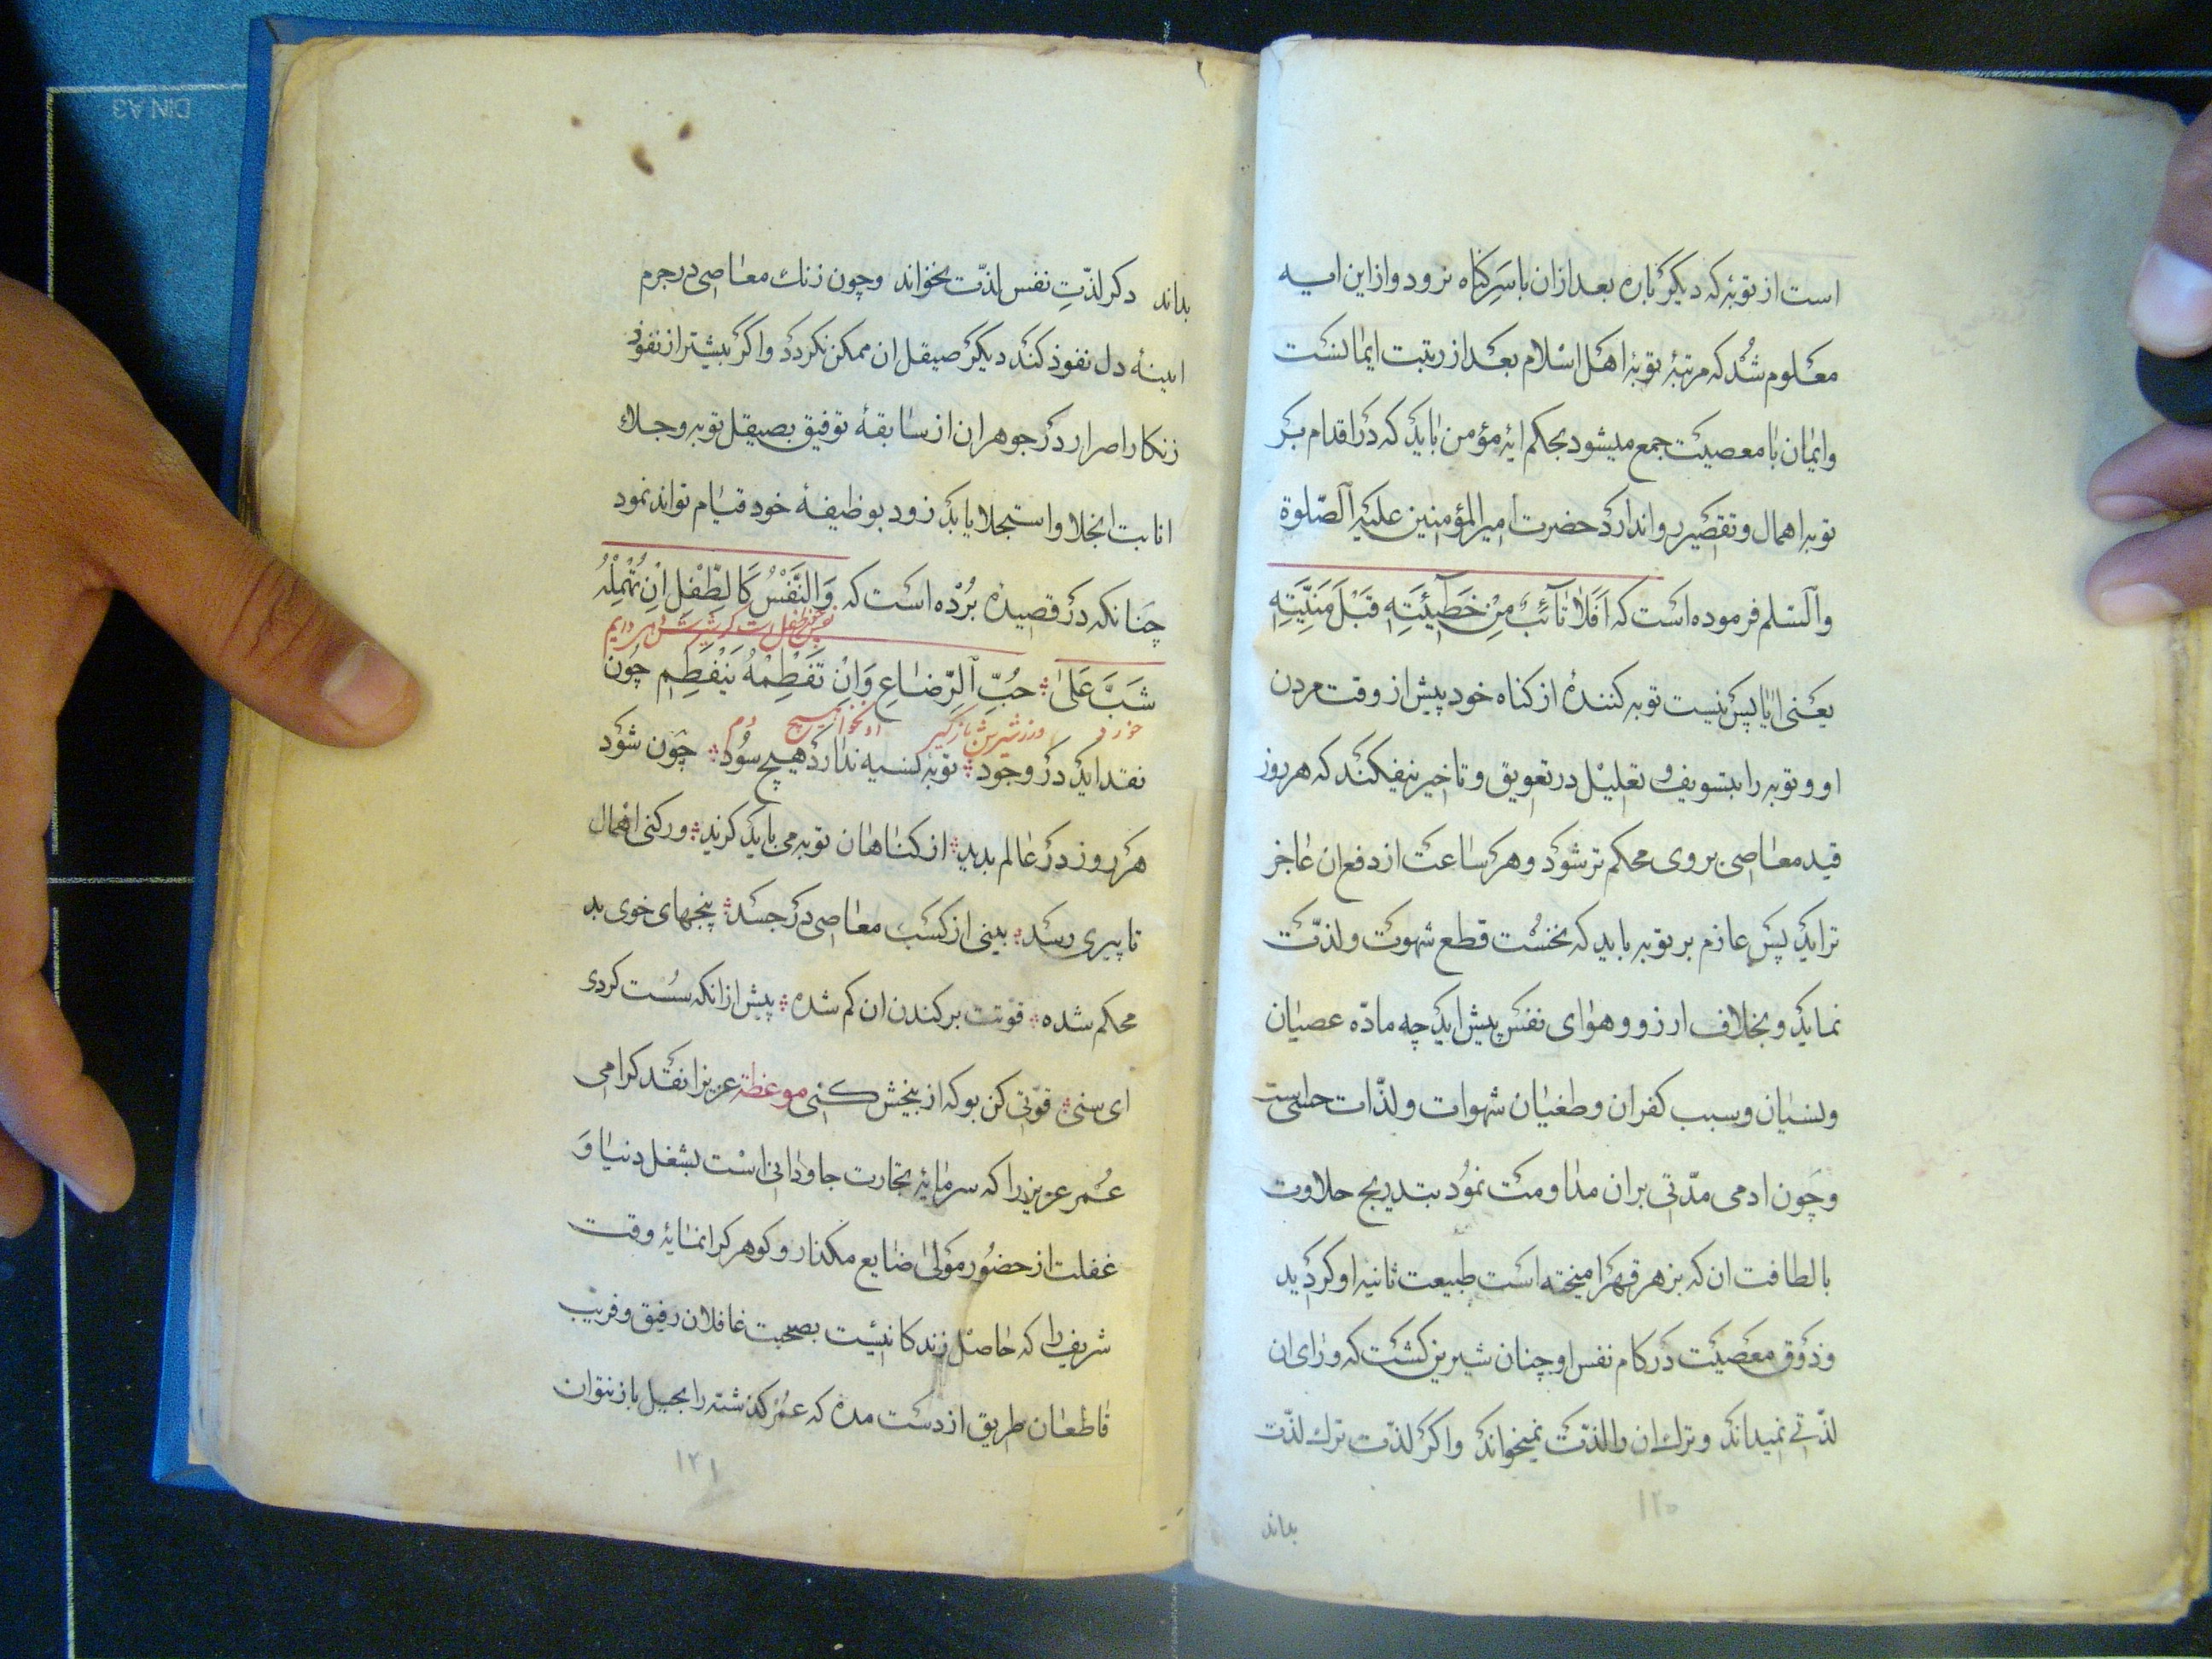 است از توبه که دیکر باره بعد از ان با سر کناه نرود و از این ایه
معلوم شد که مرتبهٔ توبهٔ اهل اسلام بعد از رتبت ایمانست
و ایمان با معصیت جمع میشود بحکم ایه مؤمن باید که در اقدام بر
توبه اهمال و تقصیر روا ندارد حضرت امیر المؤمنین علیه الصلوة
والسلم فرموده است که اَفَلَا تَآئِبٌ مِنْ خَطِٓیئَتِهِ قَبْلَ مَنِیَّتِهِ
یعنی ایا پس نیست توبه کنندهٔ از کناه خود پیش از وقت مردن
او و توبه را بتسویف و تعلیل در تعویق و تاخیر نیفکند که هر روز
قید معاصی بر وی محکم تر شود و هر ساعت از دفع ان عاجز
تر اید پس عازم بر توبه باید که نخست قطع شهوت و لذّت
نماید و بخلاف ارزو و هوای نفس پیش اید چه مادّه عصیان
و نسیان و سبب کفران و طغیان شهوات و لذّات حسّی ست
و چون ادمی مدّتی بر ان مداومت نمود بتدریج حلاوت
با لطافت ان که بزهر قهر امیخته است طبیعت ثانیه او کردید
و ذوق معصیت در کام نفس او چنان شیرین کشت که ورای ان
لذّتی نمیداند و ترك ان را لذّت نمیخواند و اکر لذّت ترك لذّت
۱۲۰
بداند
بداند دکر لذّتِ نفس لذّت نخواند و چون زنك معاصی در جرم
ایینهٔ دل نفوذ کند دیکر صیقل ان ممکن نکردد و اکر بیشتر از نفوذ
زنکار اصرار در جوهر ان از سابقهٔ توفیق بصیقل توبه و جلاء
انابت انجلا و استجلا یابد زود بوظیفهٔ خود قیام تواند نمود
چنانکه در قصیدهٔ بُرْده است که وَالنَّفْسُ کَالطِّفْلِ اِنْ تُهْمِلْهُ
شَبَّ عَلیٰ حُبِّ الرِّضَاعِ وَاِنْ تَفْطِمْهُ یَنْفَطِمِ چون
خورد ورز شیرش باز گیر
نقد اید در وجود توبه نسیه ندارد هیچ سود چون شود
هر روز در عالم بدید از کناهان توبه می باید کزید ور کنی اهمال
تا پیری رسد بینی از کسب معاصی در جسد پنجهای خوی بد
محکم شده قوّتت بر کندن ان کم شده پیش از انکه سست کردی
ای سنی قوّتی کن بو که از بیخش کنی موعظة عزیزا نقد کرامی
عُمر عزیز را که سرمایهٔ تجارت جاودانی است بشغل دنیا و
غفلت از حضور مولیٰ ضایع مکذار و کوهر کرانمایهٔ وقت
شریف را که حاصل زندکانیست بصحبت غافلان رفیق و فریب
قاطعان طریق از دست مده که عُمر کذشته را بحیل باز نتوان
۱۲۱